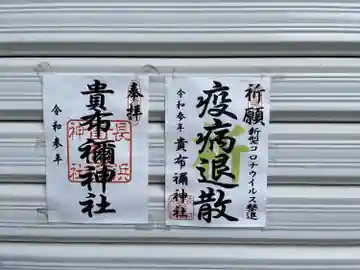 奉拝
貴布禰神社
令和参年
長浜
神社
祈願
新型コロナウイルス
疫病退散
令和参年
貴布禰神社